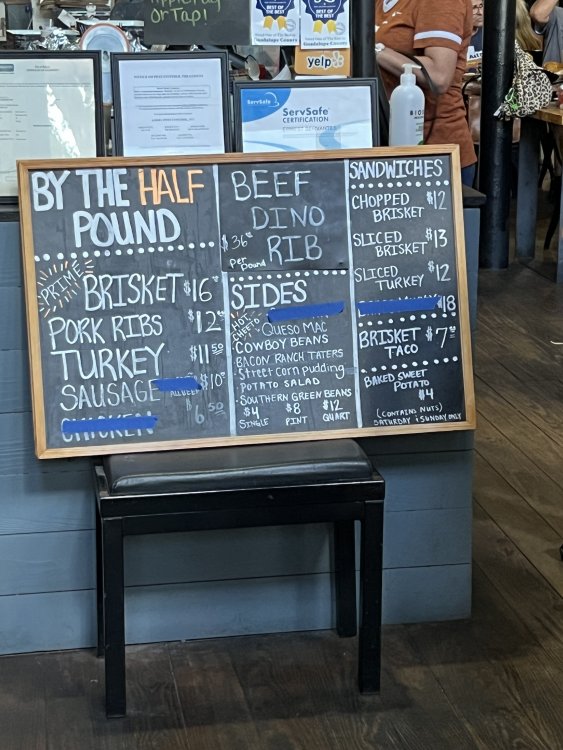 or Tap!
BEST OF
THE BEST
Guadalupe County
BEST OF
THE BEST
Guadalupe County
yelp
ServSafe
ServSafe
CERTIFICATION
BY THE HALF
POUND
PRIME
BRISKET $16
PORK RIBS $12
TURKEY $11.50
SAUSAGE $10
ALL BEEF
CHICKEN $6.50
BEEF
DINO
RIB
$36
PER POUND
SIDES
HOT CHEETO
QUESO MAC
COWBOY BEANS
BACON RANCH TATERS
Street corn pudding
POTATO SALAD
SOUTHERN GREEN BEANS
$4 $8 $12
SINGLE PINT QUART
SANDWICHES
CHOPPED
BRISKET $12
SLICED
BRISKET $13
SLICED
TURKEY $12
$18
BRISKET
TACO $7
BAKED SWEET
POTATO
$4
(CONTAINS NUTS)
SATURDAY & SUNDAY ONLY